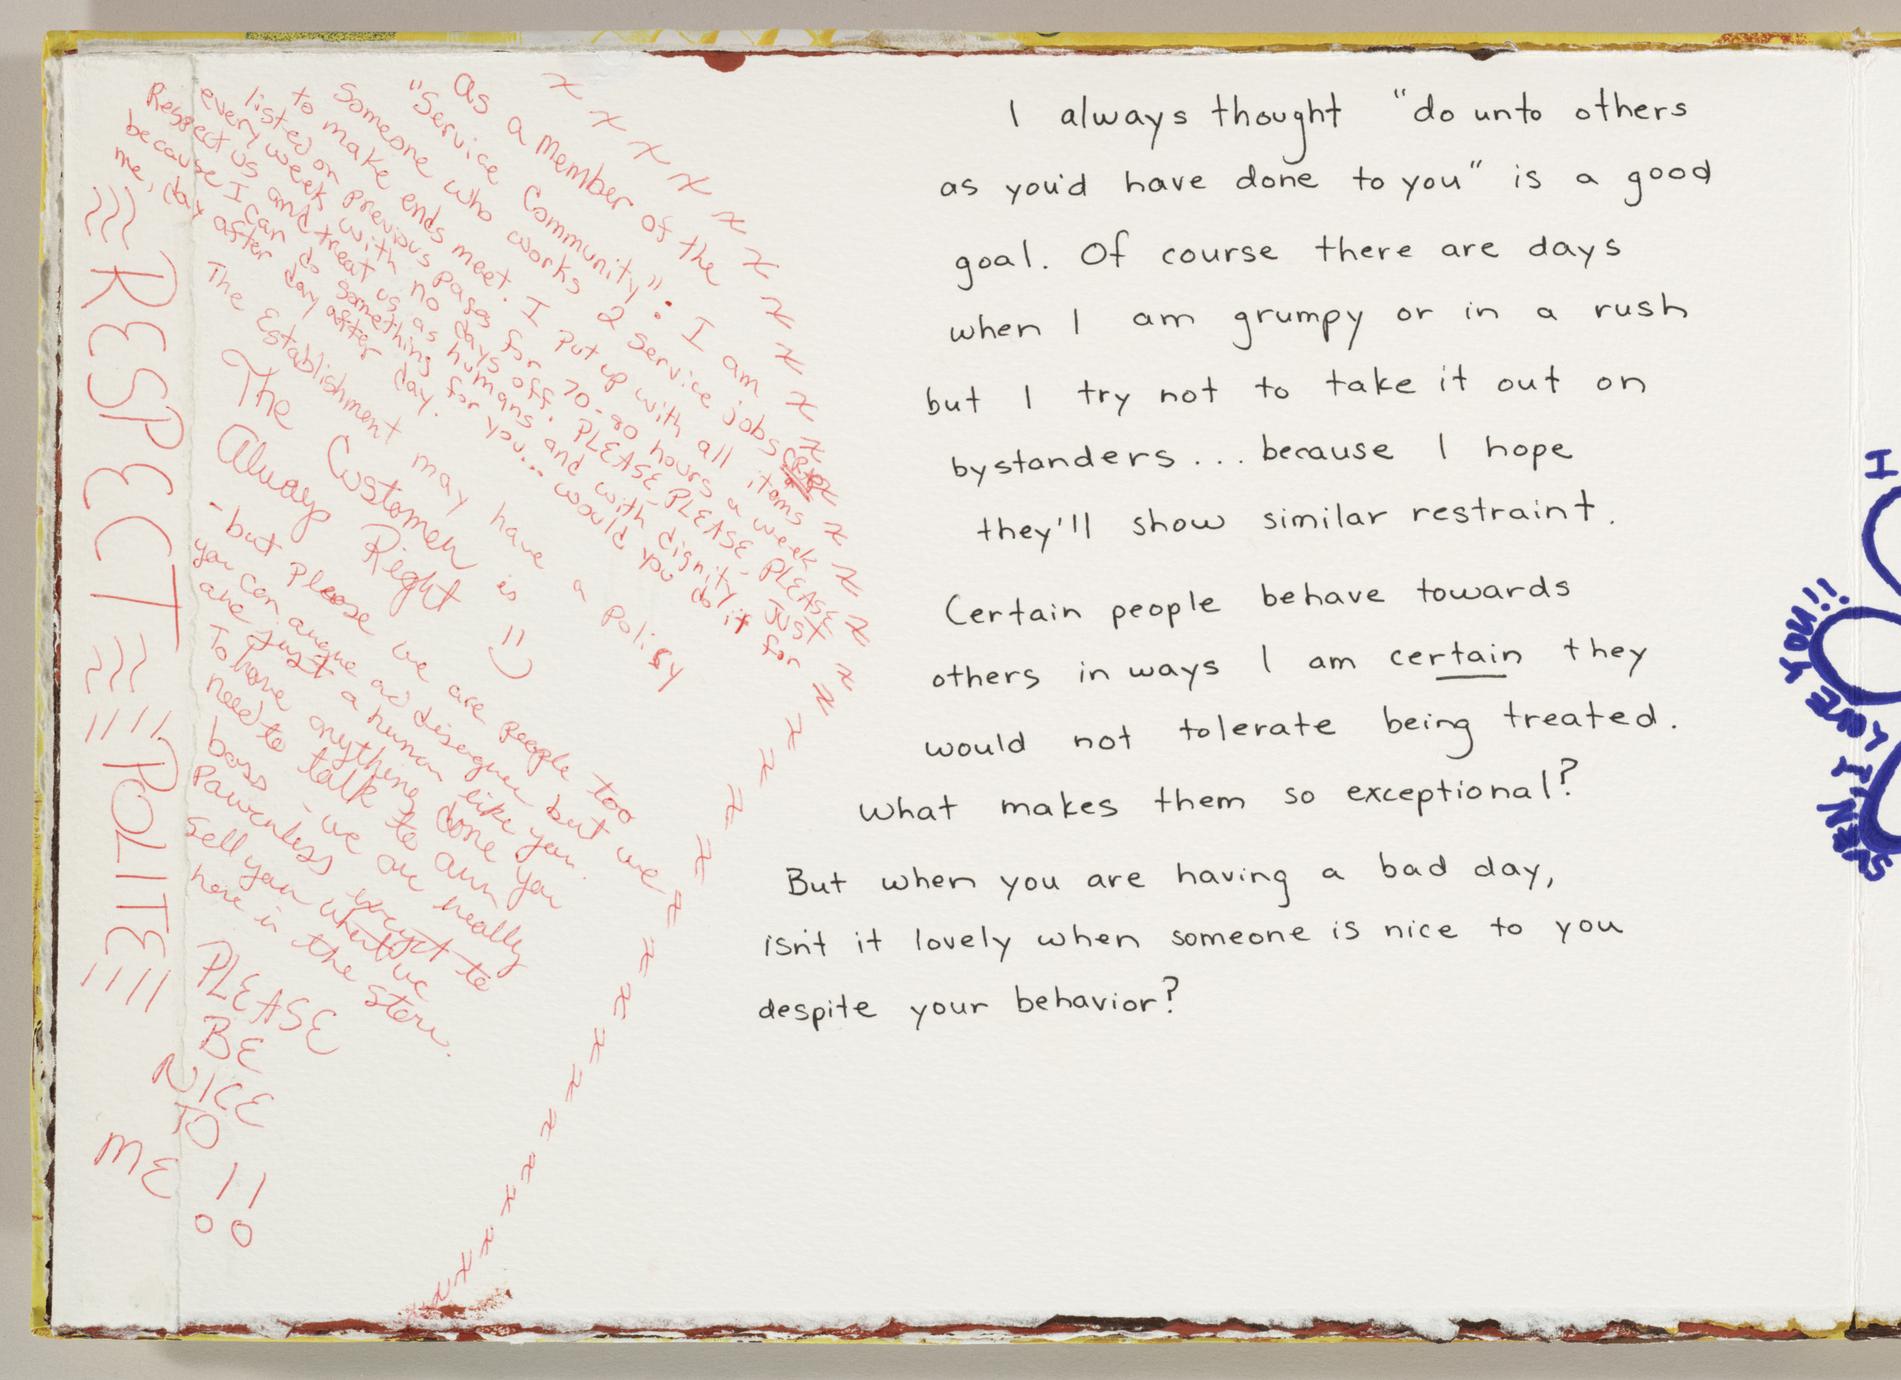 As a member of the
"Service Community": I am
someone who works 2 service jobs
to make ends meet. I put up with all items
listed on previous pages for 70-80 hours a week
every week with no days off. PLEASE PLEASE PLEASE
Respect us and treat us as humans and with dignity - JUST
because I can do something for you... would you do it for
me, day after day after day.
RESPECT
POLITE
The Establishment may have a policy
The Customer is
Always Right
- but please we are people too
you can argue ad disagree but we
are just a human like you.
To have anything done you
need to talk to our
boss - we are really
powerless except to
sell you what we
have in the store.
PLEASE
BE
NICE
TO
ME !!
I always thought "do unto others
as you'd have done to you" is a good
goal. Of course there are days
when I am grumpy or in a rush
but I try not to take it out on
bystanders... because I hope
they'll show similar restraint.
Certain people behave towards
others in ways I am certain they
would not tolerate being treated.
What makes them so exceptional?
But when you are having a bad day,
isn't it lovely when someone is nice to you
despite your behavior?
LOVE YOU!!!